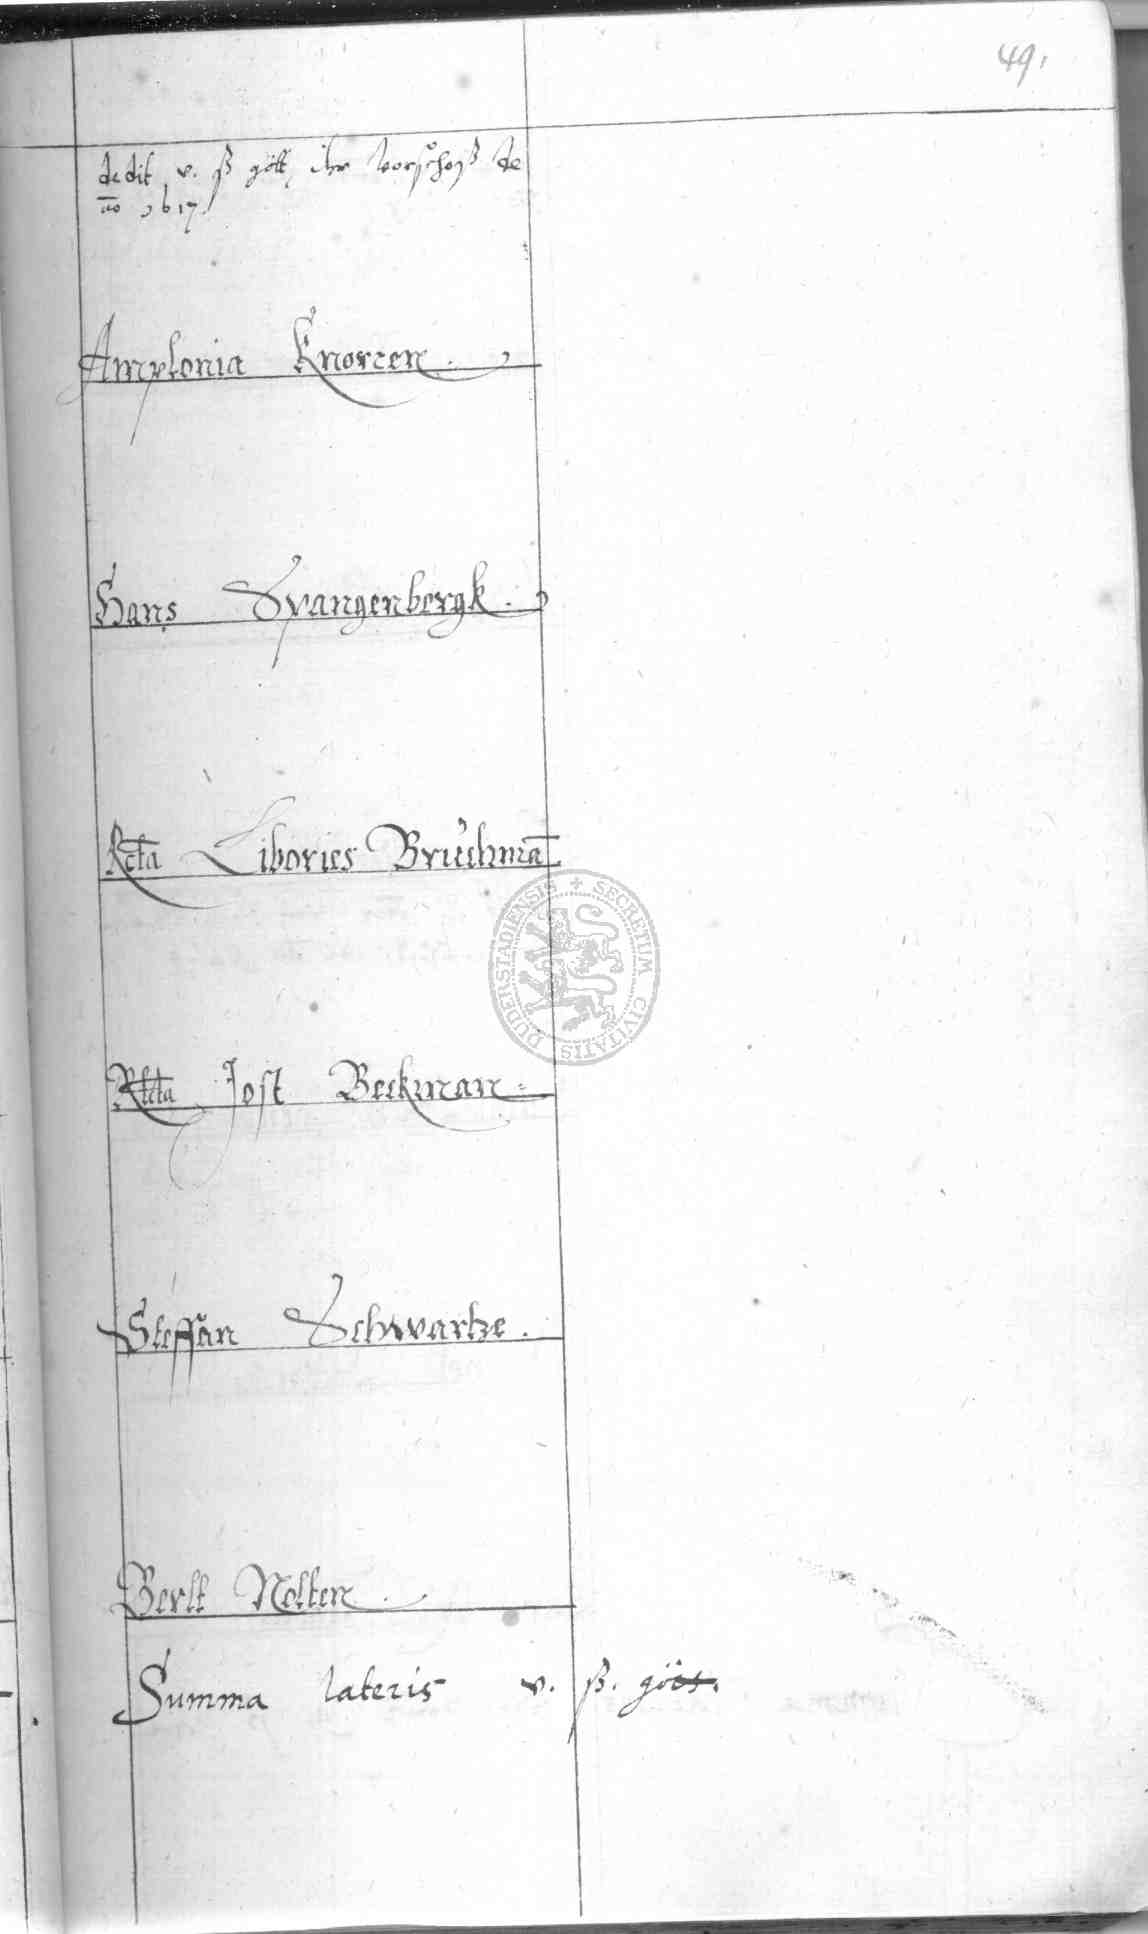 49.
dedit v. ß gött, ihr vorschoß de
ao 1617.
Amplonia Knorren.
Hans Spangenbergk.
Rcta Libories Brüchmā
Rlcta Jost Beckman
Steffan Schwartze.
Berlt Nolten.
Summa lateris v. ß. gött.
DUDERSTADIENSIS + SECRETUM CIVITATIS